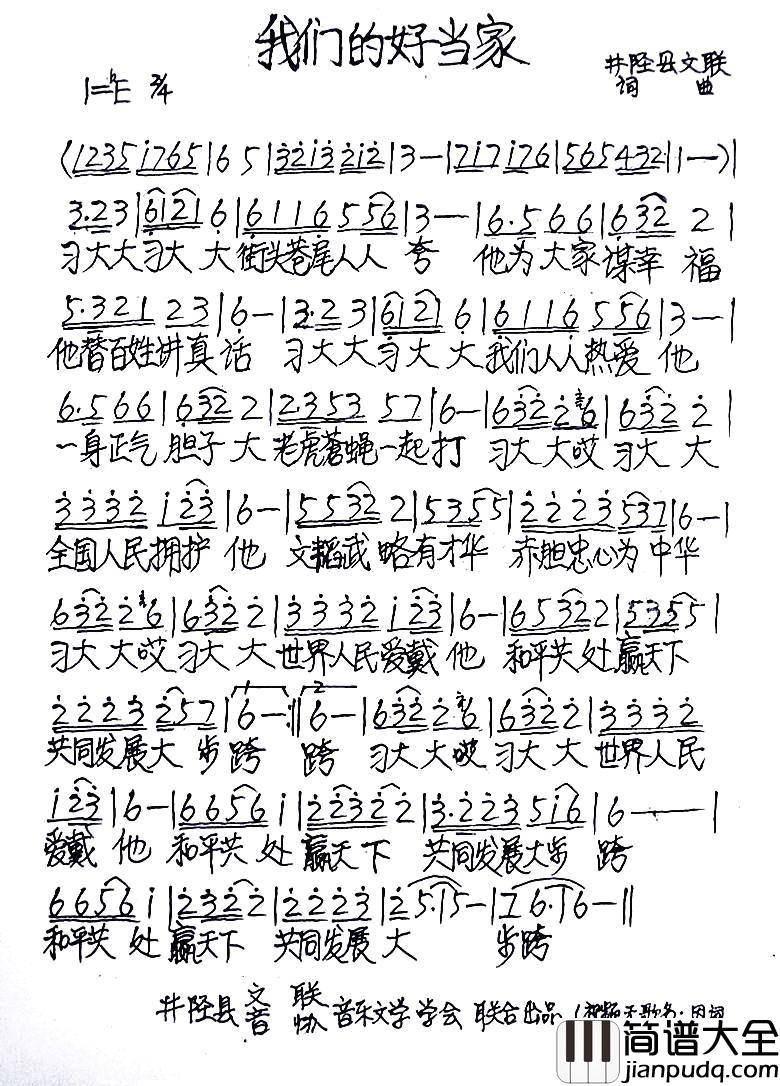 我们的好当家
井陉县文联
词 曲
1=♭E 2/4
(1235 i765|6 5|32i3 2i2|3—|7i7 i76|565 432|1—)|
3.23|6121 6|6116 556|3—|6.5 66|632 2|
习大大习大 大街头巷尾人人 夸 他为大家谋幸 福
5.321 23|6—|3.2 3|6121 6|6116 556|3—|
他替百姓讲真话 习大大习大 大我们人人热爱 他
6.5 66|632 2|2.353 57|6—|632 26|632 2|
一身正气 胆子大 老虎苍蝇一起打 习大大哎习大 大
3332 i23|6—|5532 2|53 55|2223 537|6—|
全国人民拥护 他 文韬武略有才华 赤胆忠心为中华
632 26|632 2|3332 i23|6—|6532 2|5355|
习大大哎习大 大世界人民爱戴他 和平共处赢天下
2223 257|6—:‖6—|632 26|632 2|3332
共同发展大 步跨 跨 习大大哎习大 大 世界人民
i23|6—|6656 i|2232 2|3.223 5i6|6——|
爱戴 他 和平共 处 赢天下 共同发展大步 跨
6656 i|2322|2223|2 5.i5—|i6.i6—‖
和平共 处赢天下 共同发展 大 步跨
井陉县文联 音协 音乐文学学会 联合出品
简谱大全
jianpudq.com